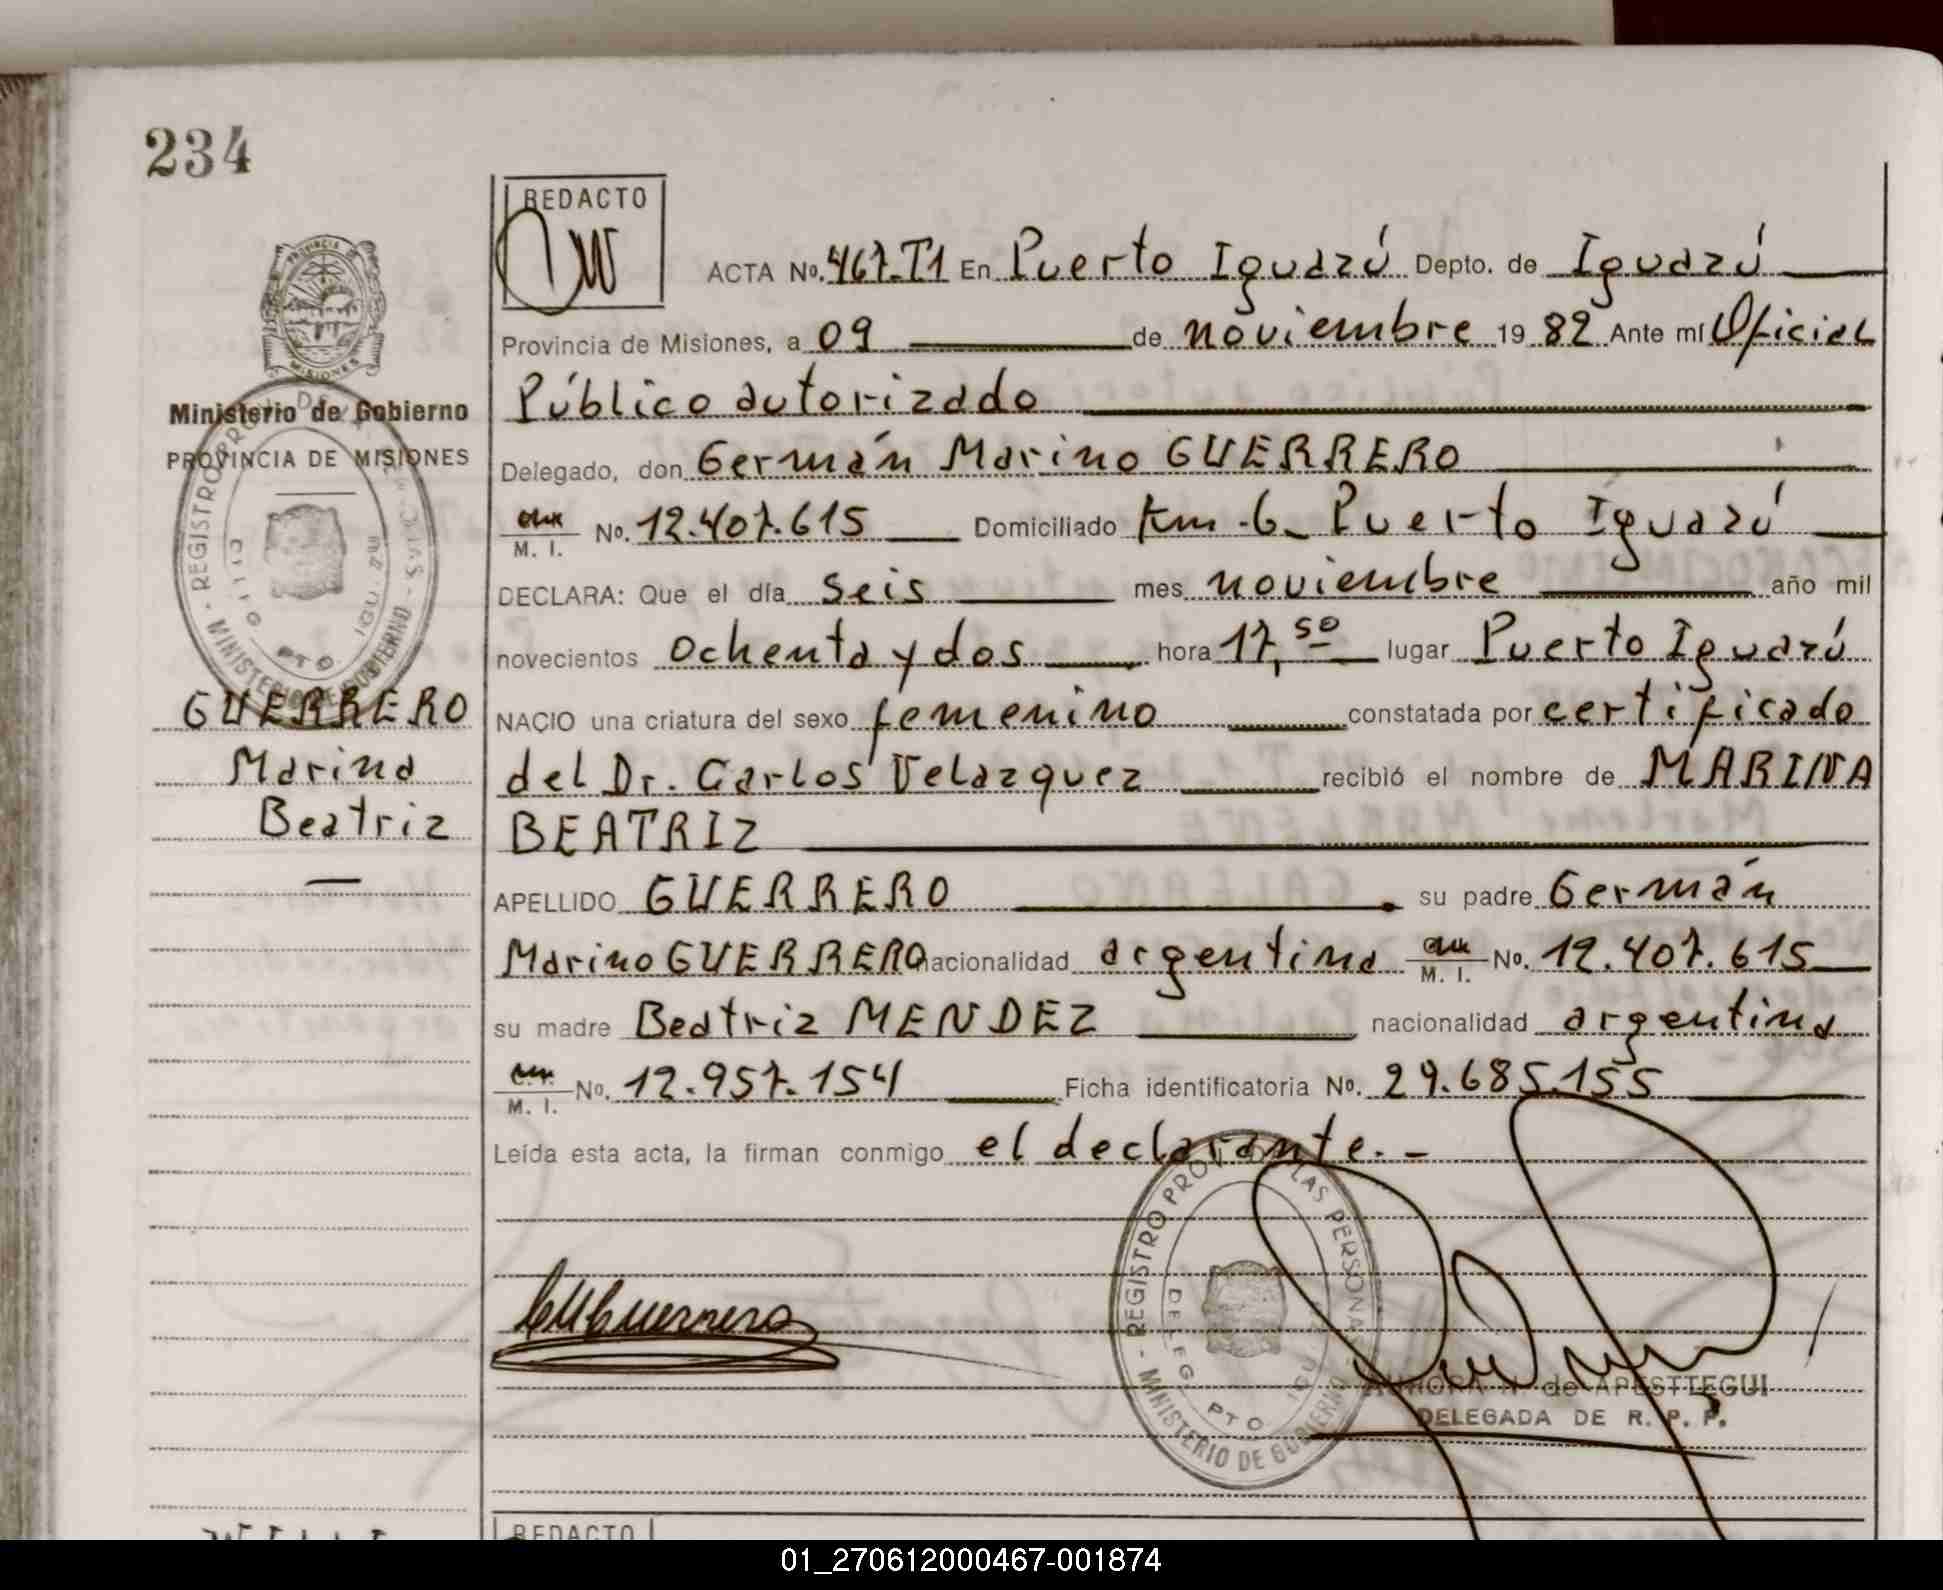 234
REDACTO
ACTA No. 467-T1 En Puerto Iguazú Depto. de Iguazú
Provincia de Misiones, a 09 de noviembre 19 82 Ante mí Oficial
Público autorizado
Delegado, don Germán Marino GUERRERO
M. I. No. 12.407.615 Domiciliado Km-6- Puerto Iguazú
DECLARA: Que el día seis mes noviembre año mil
novecientos ochenta y dos hora 17,50 lugar Puerto Iguazú
NACIO una criatura del sexo femenino constatada por certificado
del Dr. Carlos Velazquez recibió el nombre de MARINA
BEATRIZ
APELLIDO GUERRERO su padre Germán
Marino GUERRERO nacionalidad argentina M. I. No. 12.407.615
su madre Beatriz MENDEZ nacionalidad argentina
M. I. No. 12.957.154 Ficha identificatoria No. 29.685.155
Leída esta acta, la firman conmigo el declarante.-
Ministerio de Gobierno
PROVINCIA DE MISIONES
GUERRERO
Marina
Beatriz
PROVINCIA DE MISIONES
- REGISTRO PROV. DE LAS PERSONAS -
MINISTERIO DE GOBIERNO
PTO. IGU
Guerrero
- REGISTRO PROV. DE LAS PERSONAS
MINISTERIO DE GOBIERNO
DELEG. PTO. IGU
de APESTTEGUI
DELEGADA DE R. P. P.
REDACTO
01_270612000467-001874